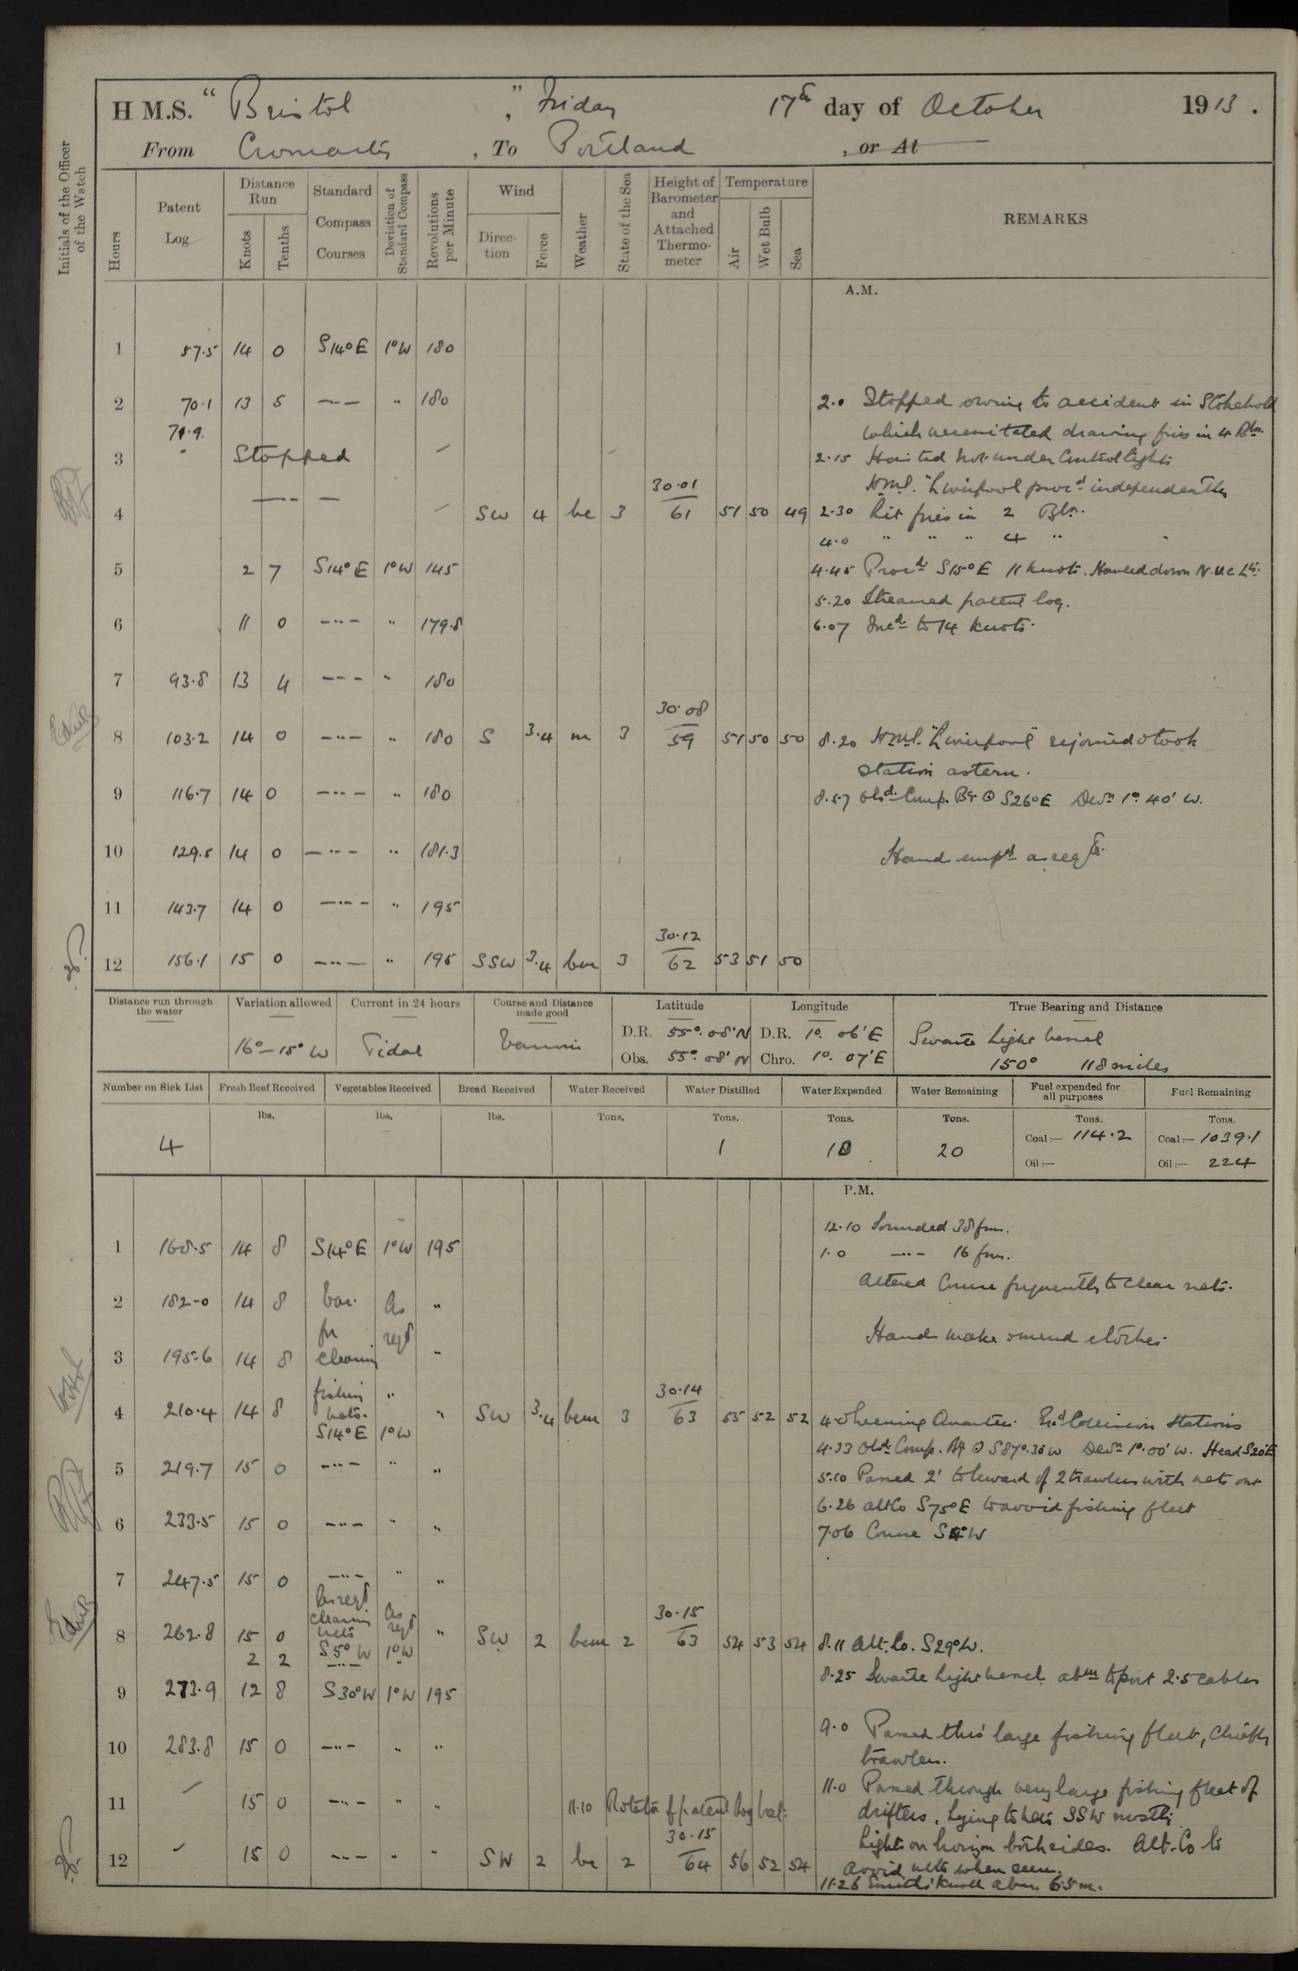 H M.S. " Bristol " , Friday 17th day of October 1913.
From Cromarty , To Portland , or At
Initials of the Officer of the Watch
Hours Patent Log Distance Run Knots Tenths Standard Compass Courses Deviation of Standard Compass Revolutions per Minute Wind Direction Force Weather State of the Sea Height of Barometer and Attached Thermometer Temperature Air Wet Bulb Sea REMARKS
A.M.
1 57.5 14 0 S14°E 1°W 180
2 70.1 13 5 — — " 180 2.0 Stopped owing to accident in Stokehold
71.9 which necessitated drawing fires in 4 Blrs.
3 Stopped 2.15 Hoisted not under Control lights
30.01 H.M.S. "Liverpool procd independently
4 SW 4 bc 3 61 51 50 49 2.30 Lit fires in 2 Blrs.
4.0 " " " 4 "
5 2 7 S14°E 1°W 145 4.45 Procd S15°E 11 knots. Hauled down N.U.C Lts.
5.20 Streamed patent log.
6 11 0 — " — " 179.8 6.07 Incd to 14 knots.
7 93.8 13 4 — — — " 180
30.08
8 103.2 14 0 — " — " 180 S 3.4 m 3 59 51 50 50 8.20 H.M.S. "Liverpool" rejoined & took
station astern.
9 116.7 14 0 — " — " 180 8.57 Obsd. Comp. Bg. ☉ S26°E Devn 1°. 40' W.
10 129.5 14 0 — " — " 181.3 Hands empd as reqte.
11 143.7 14 0 — " — " 195
30.12
12 156.1 15 0 — " — " 195 SSW 3.4 bm 3 62 53 51 50
Distance run through the water Variation allowed Current in 24 hours Course and Distance made good Latitude Longitude True Bearing and Distance
16°–15° W Tidal Various D.R. 55°. 08'N D.R. 1°. 06'E Swarte Light vessel
Obs. 55°. 08' N Chro. 1°. 07'E 150° 118 miles
Number on Sick List Fresh Beef Received Vegetables Received Bread Received Water Received Water Distilled Water Expended Water Remaining Fuel expended for all purposes Fuel Remaining
lbs. lbs. lbs. Tons. Tons. Tons. Tons. Tons. Tons.
4 1 10 20 Coal:— 114.2 Coal:— 1039.1
Oil:— Oil:— 224
P.M.
12.10 Sounded 38 fms.
1 168.5 14 8 S14°E 1°W 195 1.0 — " — 16 fms.
Altered Course frequently to clear nets.
2 182.0 14 8 Var. As "
for reqd Hands make & mend clothes.
3 195.6 14 8 clearing "
fishing " 30.14
4 210.4 14 8 nets. " SW 3.4 bcm 3 63 55 52 52 4.0 Evening Quarters. Exd Collision Stations
S14°E 1°W 4.33 Obsd Comp. Bg ☉ S87°.30W Devn 1°.00' W. Head S20°E
5 219.7 15 0 — " — " " 5.10 Passed 2' to leeward of 2 trawlers with nets out
6.26 alt Co S75°E to avoid fishing fleet
6 233.5 15 0 — " — " " 7.06 Course S4°W
7 247.5 15 0 — " — " "
As reqd
clearing As 30.15
8 262.8 15 0 nets reqd " SW 2 bcm 2 63 54 53 54 8.11 Alt. Co. S29°W.
2 2 S5°W 1°W
8.25 Swarte Light vessel abm to port 2.5 cables
9 273.9 12 8 S30°W 1°W 195
9.0 Passed thro' large fishing fleet, Chiefly
10 283.8 15 0 — " — " " trawlers.
11.0 Passed through very large fishing fleet of
11 15 0 — " — " " 11.10 Rotator of patent log lost. drifters, Lying to nets SSW mostly
30.15 Lights on horizon both sides. Alt. Co to
12 15 0 — — — " " SW 2 bc 2 64 56 52 54 avoid nets when seen.
11.26 Smiths Knoll abm 6.5 m.